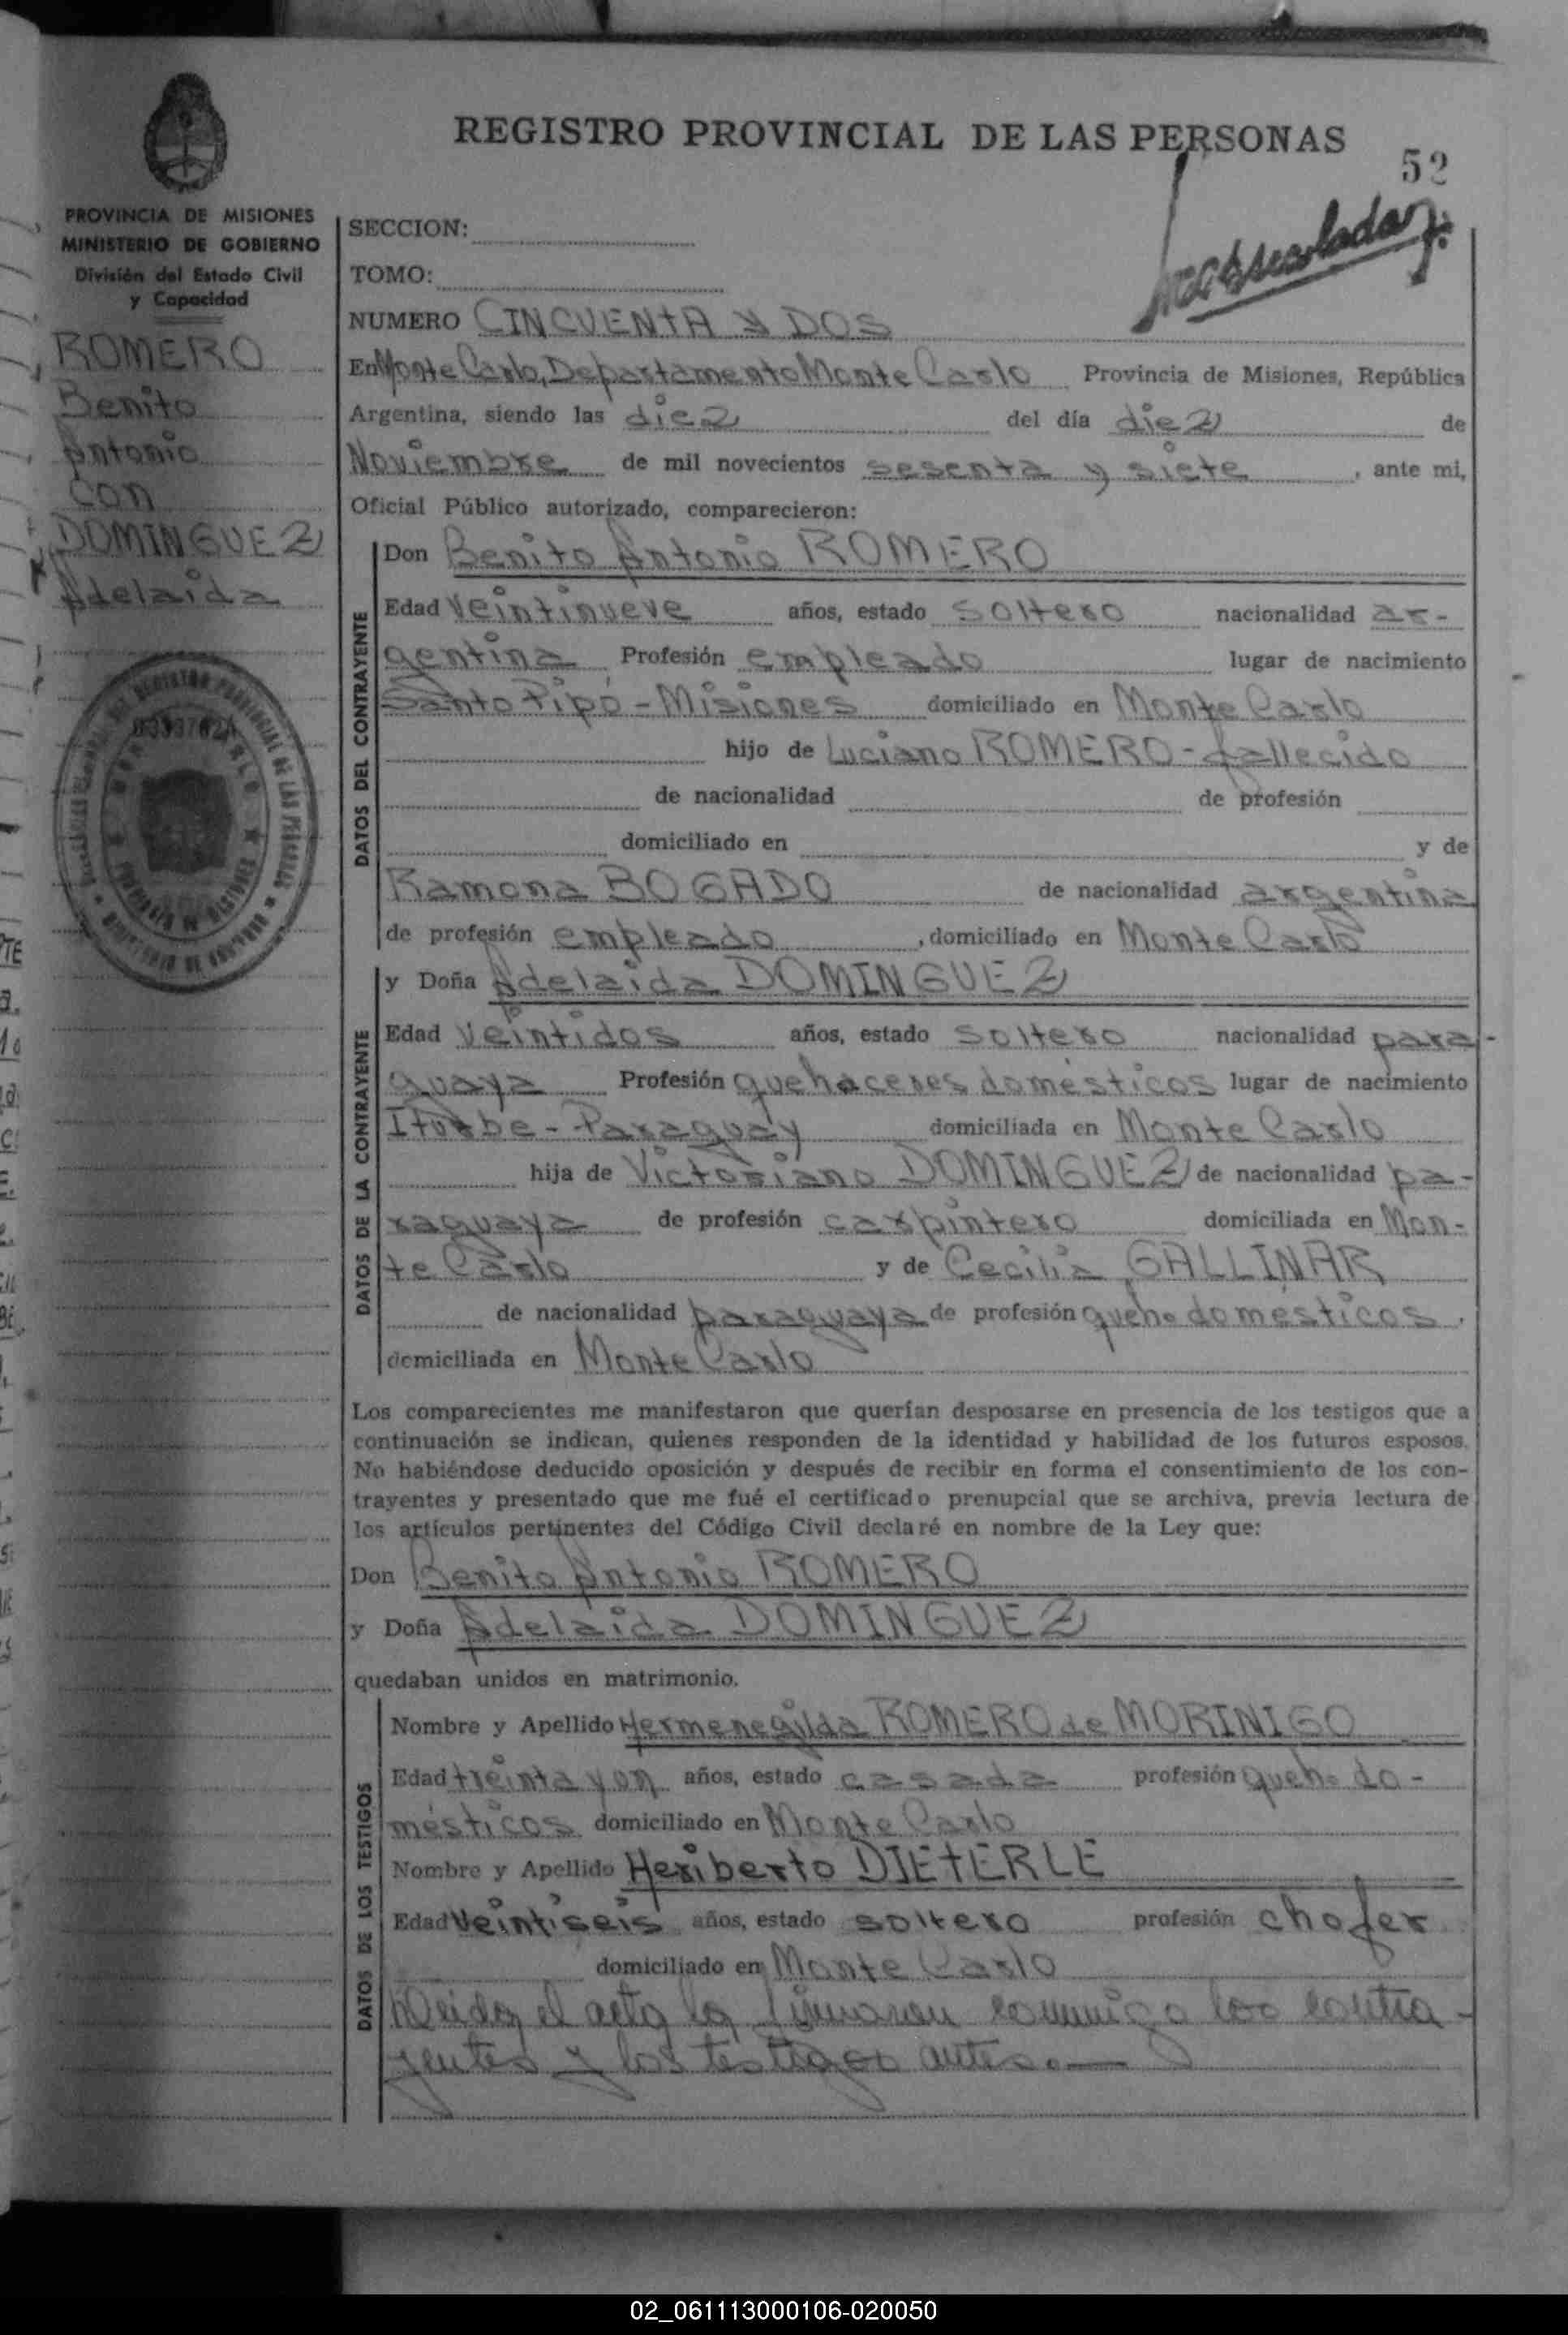 REGISTRO PROVINCIAL DE LAS PERSONAS
52
PROVINCIA DE MISIONES
MINISTERIO DE GOBIERNO
División del Estado Civil
y Capacidad
ROMERO
Benito
Antonio
con
DOMINGUEZ
Adelaida
SECCION:
TOMO:
NUMERO CINCUENTA Y DOS
En Monte Carlo, Departamento Monte Carlo Provincia de Misiones, República
Argentina, siendo las diez del día diez de
Noviembre de mil novecientos sesenta y siete, ante mi,
Oficial Público autorizado, comparecieron:
DATOS DEL CONTRAYENTE
Don Benito Antonio ROMERO
Edad veintinueve años, estado soltero nacionalidad ar-
gentina Profesión empleado lugar de nacimiento
Santo Pipó - Misiones domiciliado en Monte Carlo
hijo de Luciano ROMERO - fallecido
de nacionalidad de profesión
domiciliado en y de
Ramona BOGADO de nacionalidad argentina
de profesión empleado, domiciliado en Monte Carlo
DATOS DE LA CONTRAYENTE
y Doña Adelaida DOMINGUEZ
Edad veintidos años, estado soltero nacionalidad para-
guaya Profesión quehaceres domésticos lugar de nacimiento
Iturbe - Paraguay domiciliada en Monte Carlo
hija de Victoriano DOMINGUEZ de nacionalidad pa-
raguaya de profesión carpintero domiciliada en Mon-
te Carlo y de Cecilia GALLINAR
de nacionalidad paraguaya de profesión queh. domésticos.
domiciliada en Monte Carlo
Los comparecientes me manifestaron que querían desposarse en presencia de los testigos que a
continuación se indican, quienes responden de la identidad y habilidad de los futuros esposos.
No habiéndose deducido oposición y después de recibir en forma el consentimiento de los con-
trayentes y presentado que me fué el certificado prenupcial que se archiva, previa lectura de
los artículos pertinentes del Código Civil declaré en nombre de la Ley que:
Don Benito Antonio ROMERO
y Doña Adelaida DOMINGUEZ
quedaban unidos en matrimonio.
DATOS DE LOS TESTIGOS
Nombre y Apellido Hermenegilda ROMERO de MORINIGO
Edad treinta y un años, estado casada profesión queh. do-
mésticos domiciliado en Monte Carlo
Nombre y Apellido Heriberto DIETERLE
Edad veintiseis años, estado soltero profesión chofer
domiciliado en Monte Carlo
Leida el acta la firmaron conmigo los contra-
yentes y los testigos antes.—
02_061113000106-020050